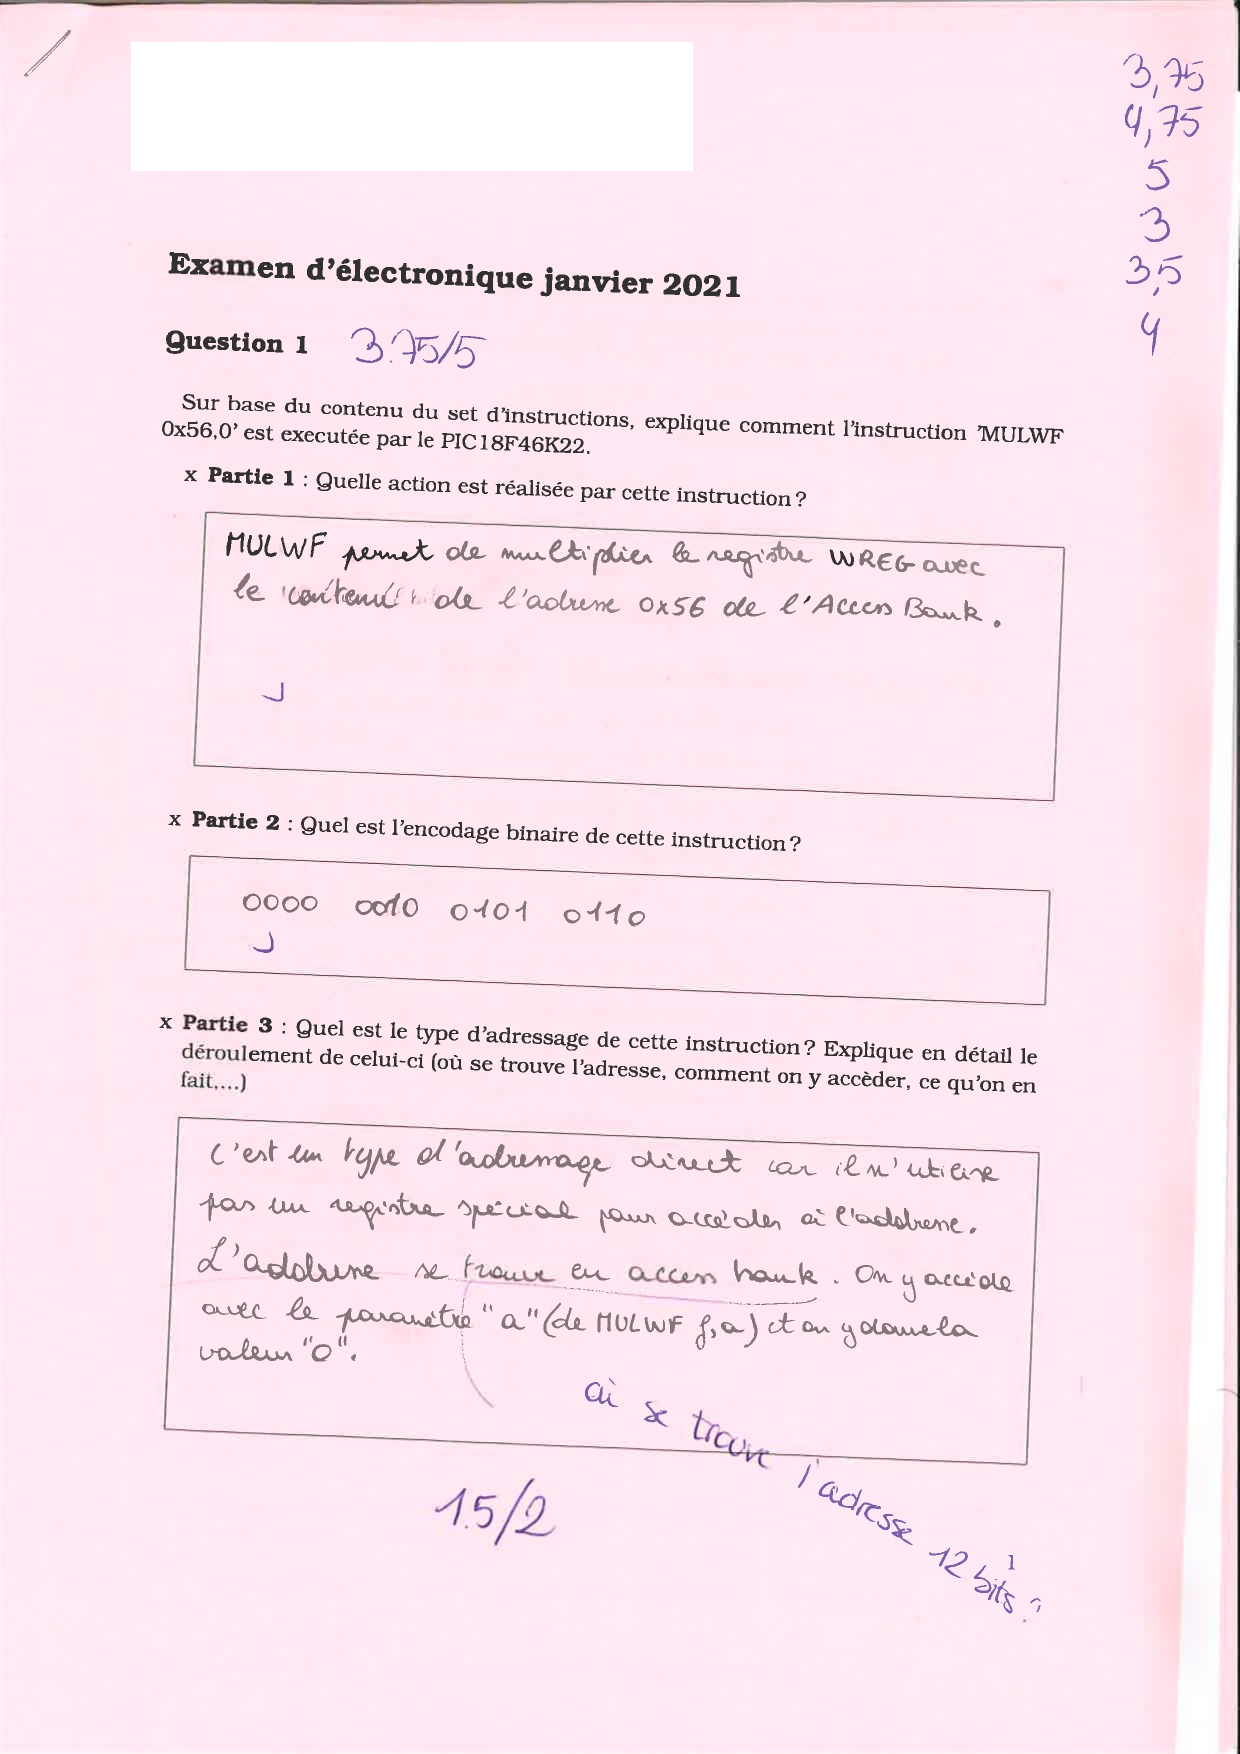 3,75
4,75
5
3
3,5
4
Examen d'électronique janvier 2021
Question 1 3.75/5
Sur base du contenu du set d'instructions, explique comment l'instruction 'MULWF
0x56,0' est executée par le PIC18F46K22.
x Partie 1 : Quelle action est réalisée par cette instruction ?
MULWF permet de multiplier le registre WREG avec
le contenu de l'adresse 0x56 de l'Access Bank.
x Partie 2 : Quel est l'encodage binaire de cette instruction ?
0000 0010 0101 0110
x Partie 3 : Quel est le type d'adressage de cette instruction ? Explique en détail le
déroulement de celui-ci (où se trouve l'adresse, comment on y accèder, ce qu'on en
fait,...)
C'est un type d'adressage direct car il n'utilise
pas un registre spécial pour accéder à l'addresse.
L'addresse se trouve en access bank. On y accède
avec le paramètre "a" (de MULWF f,a) et on y donne la
valeur "0".
où se trouve l'adresse 12 bits ?
1.5/2
1